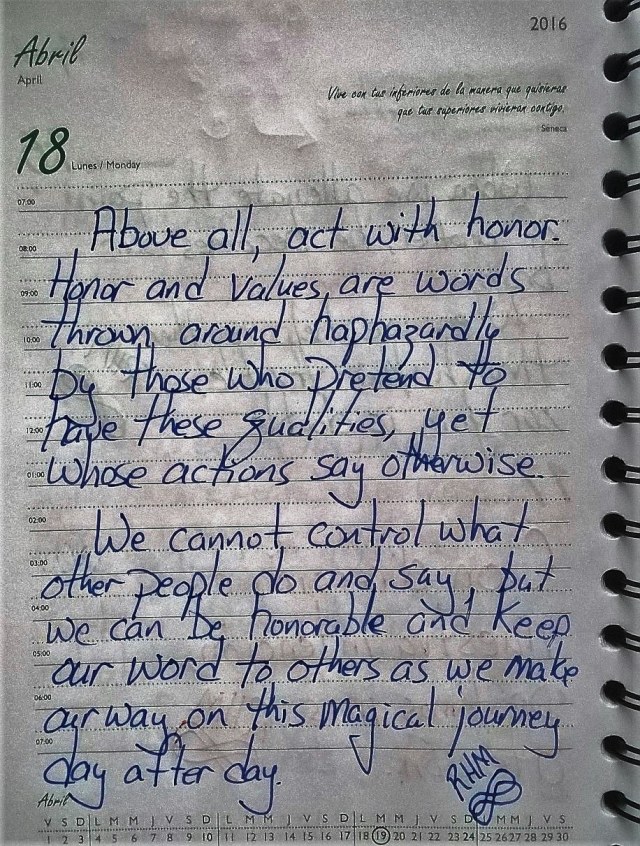 2016
Abril
April
Vive con tus inferiores de la manera que quisieras
que tus superiores vivieran contigo.
Séneca
18 Lunes / Monday
07:00
Above all, act with honor.
08:00
Honor and values are words
09:00
thrown around haphazardly
10:00
by those who pretend to
11:00
have these qualities, yet
12:00
whose actions say otherwise.
01:00
02:00
We cannot control what
03:00
other people do and say, but
04:00
we can be honorable and keep
05:00
our word to others as we make
06:00
our way on this magical journey
07:00
day after day.
RHM
Abril
V S D L M M J V S D L M M J V S D L M M J V S D L M M J V S
1 2 3 4 5 6 7 8 9 10 11 12 13 14 15 16 17 18 19 20 21 22 23 24 25 26 27 28 29 30